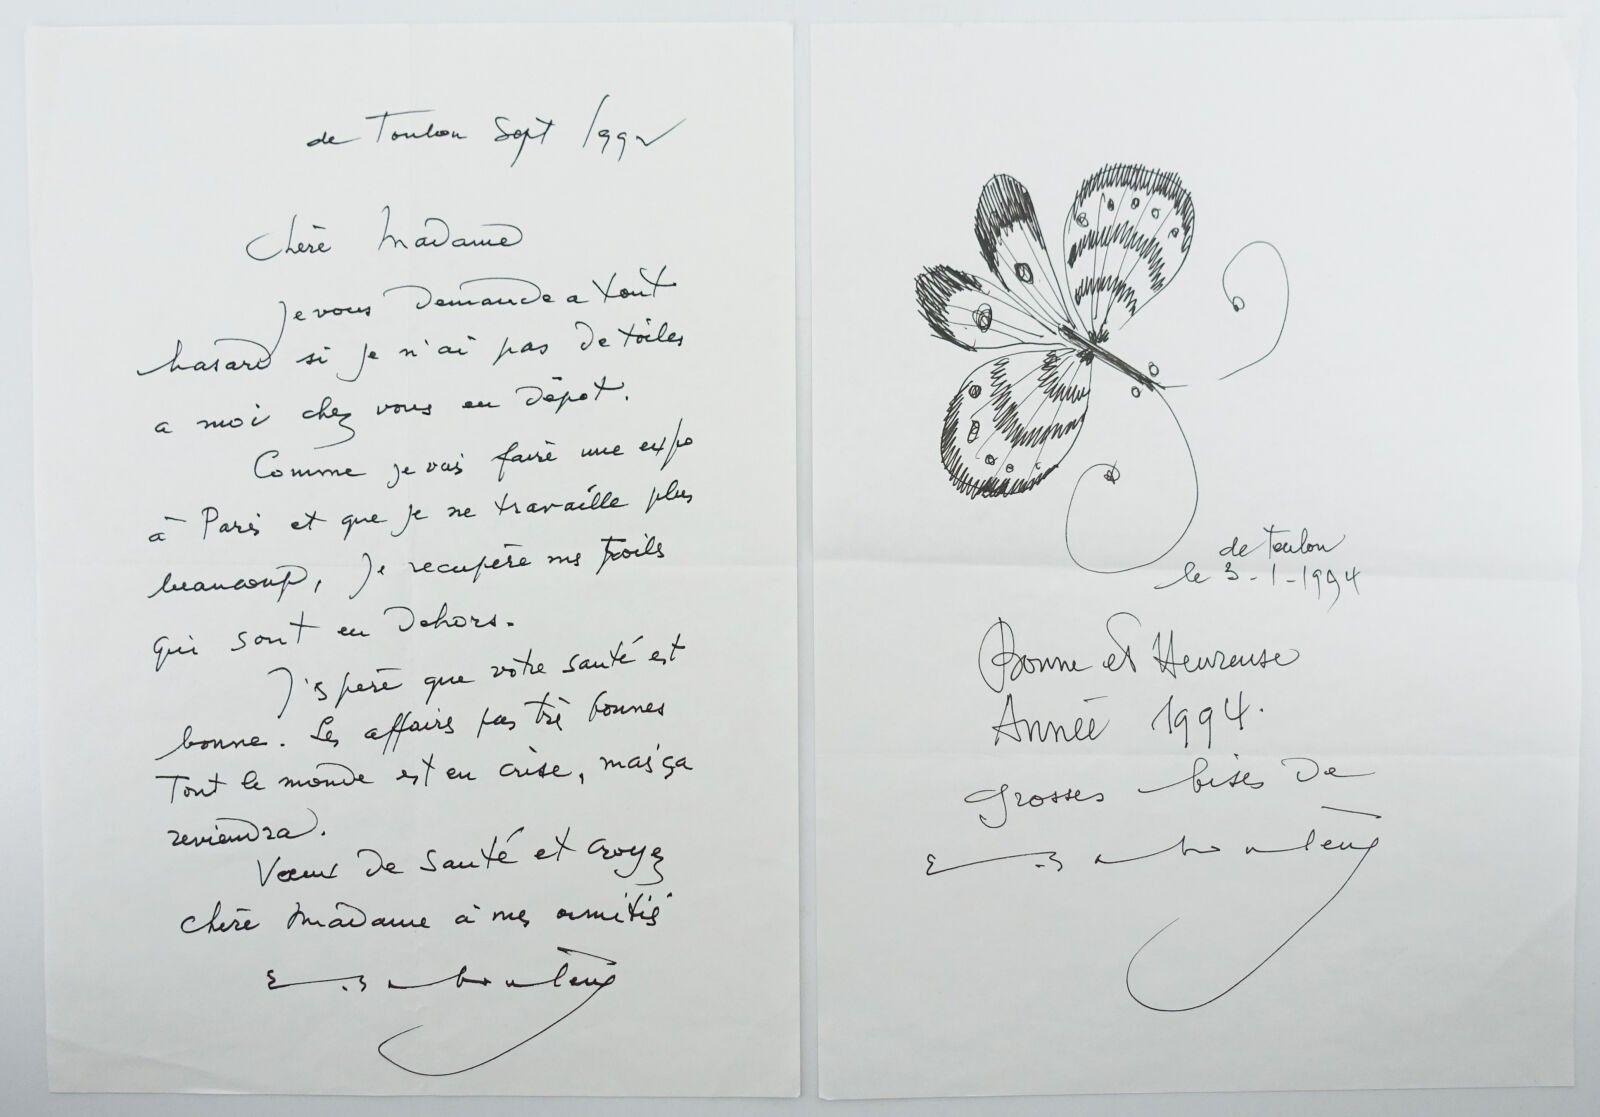 de Toulon Sept 1992
Chère Madame
Je vous demande a tout
hasard si je n'ai pas de toiles
a moi chez vous en dépot.
Comme je vais faire une expo
à Paris et que je ne travaille plus
beaucoup, je recupère mes toils
qui sont en dehors.
J'spère que vôtre santé est
bonne. Les affairs pas très bonnes
Tout le monde est en crise, mais ça
reviendra.
Vœux de santé et croyez
chère Madame à mes amitiés
de Toulon
le 3-1-1994
Bonne et Heureuse
Année 1994.
grosses bises de